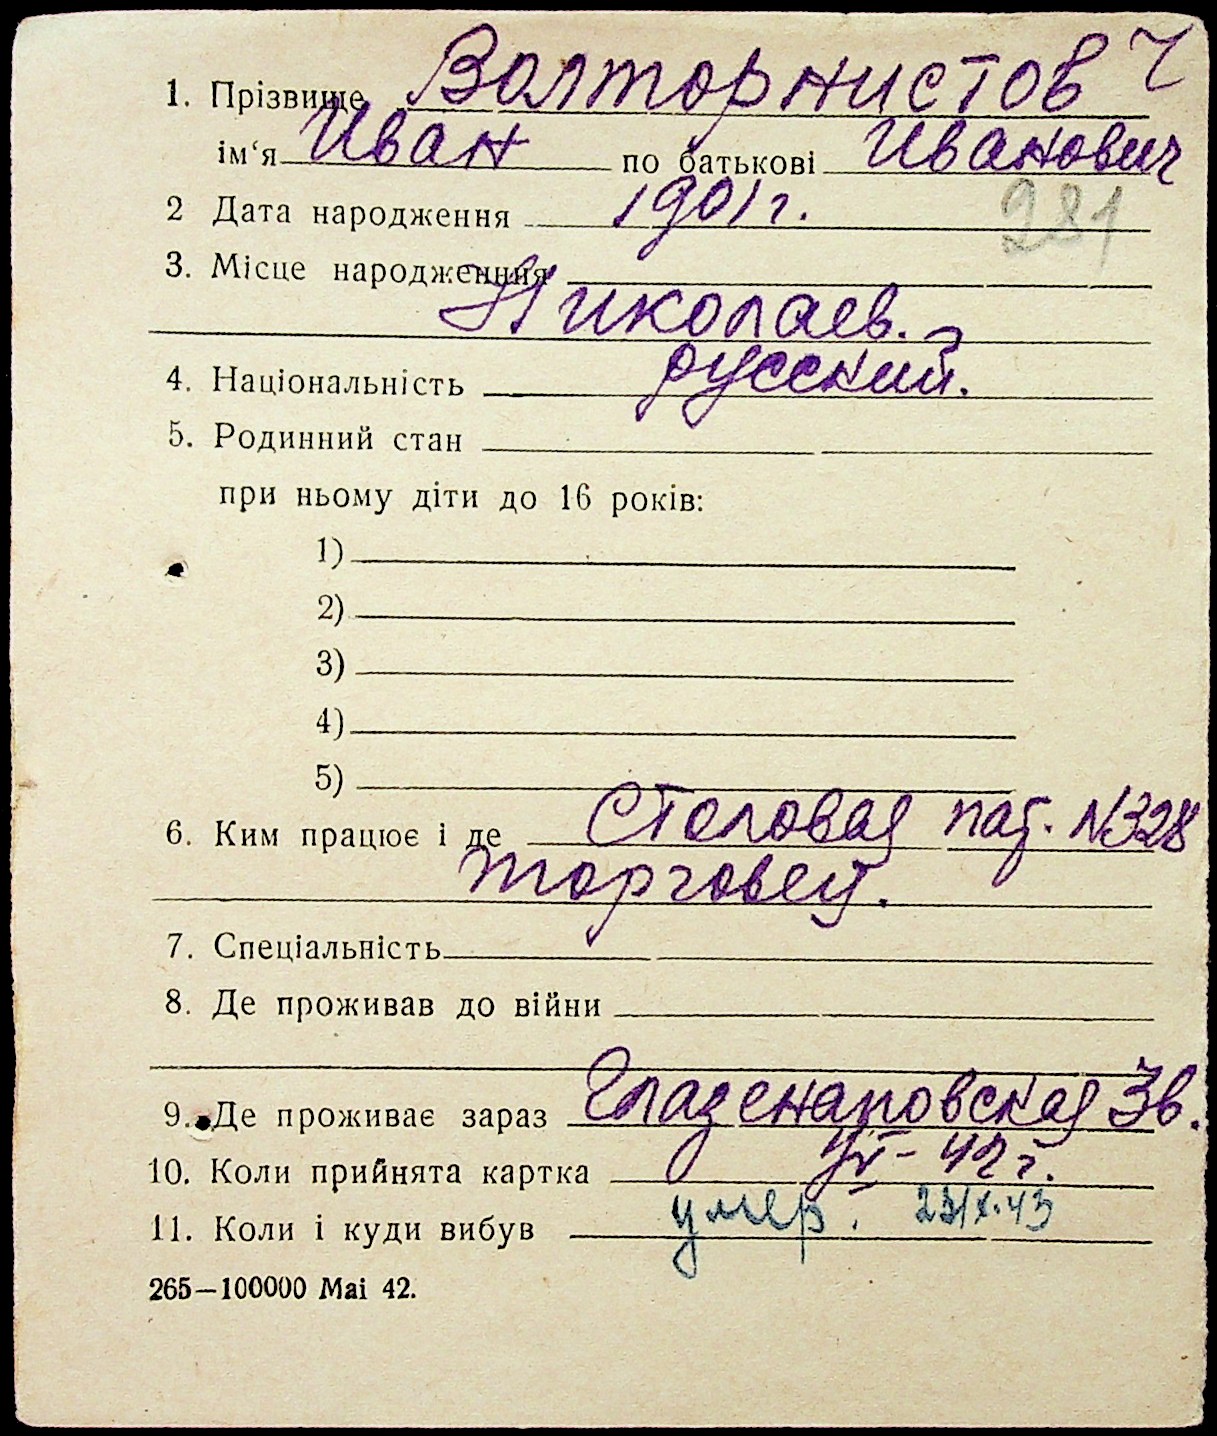 1. Прізвище Волторнистов Ч
ім‘я Иван по батькові Иванович
2 Дата народження 1901 г.
281
3. Місце народження
Николаев.
4. Національність русский.
5. Родинний стан
при ньому діти до 16 років:
1)
2)
3)
4)
5)
6. Ким працює і де Столовая пат. N328
торговец.
7. Спеціальність
8. Де проживав до війни
9. Де проживає зараз Глазенаповская 3в.
10. Коли прийнята картка - 42 г.
11. Коли і куди вибув умер. 23/X.43
265—100000 Mai 42.